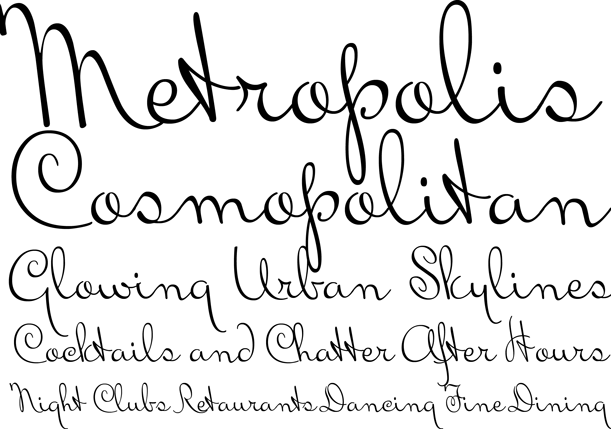 Metropolis
Cosmopolitan
Glowing Urban Skylines
Cocktails and Chatter After Hours
Night Clubs Retaurants Dancing Fine Dining